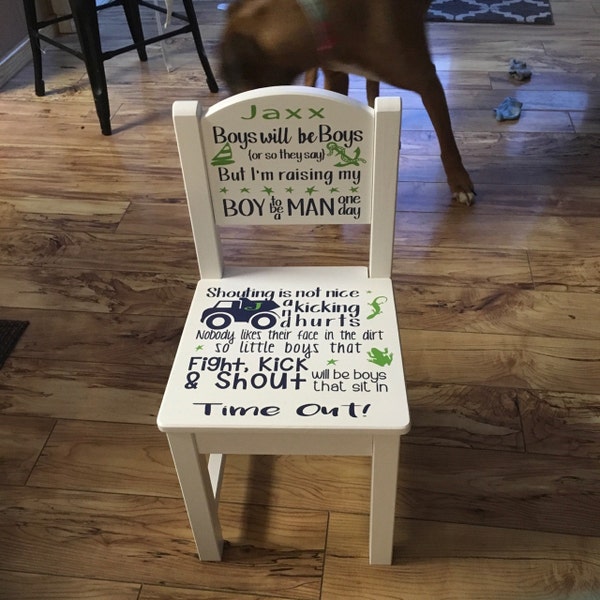 Jaxx
Boys will be Boys
{or so they say}
But I'm raising my
BOY to be a MAN one day
Shouting is not nice
J and kicking
hurts
Nobody likes their face in the dirt
so little boys that
Fight, Kick
& Shout will be boys
that sit in
Time Out!